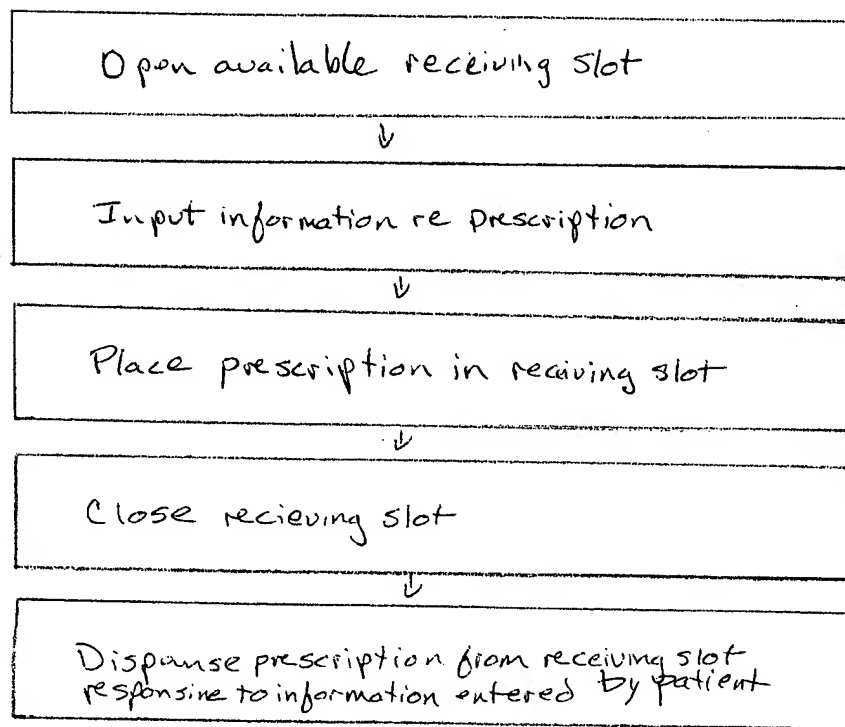 Open available receiving slot
Input information re prescription
Place prescription in receiving slot
Close recieving slot
Dispanse prescription from receiving slot
responsive to information entered by patient